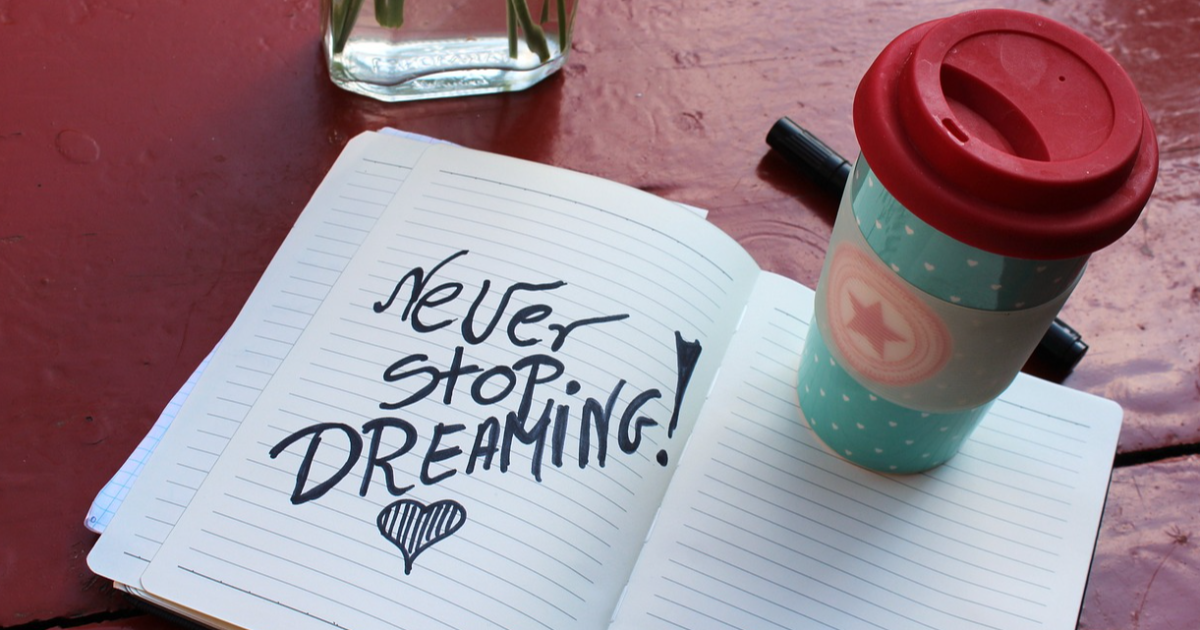 Never
stop
DREAMiNG!